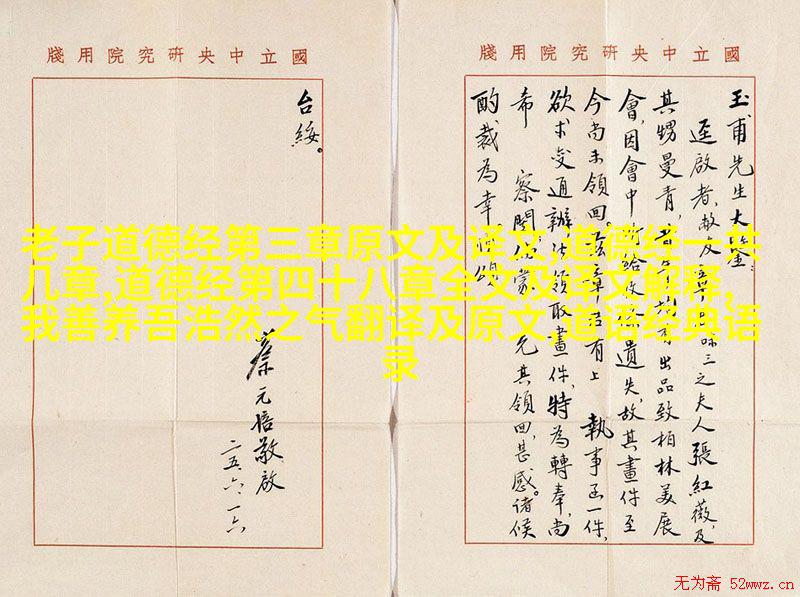 國立中央研究院用牋
玉甫先生大鑒:
逕啟者,敝友章味三之夫人張紅薇,及
其甥曼青,均有出品致柏林美展
會,因會中所給收遺失,故其畫件至
今尚未領回,茲章君有上 執事函一件,
欲求變通辦法領取畫件,特為轉奉,尚
希 察閱蒙 允其領回,甚感。諸候
酌裁為幸。順頌
國立中央研究院用牋
台綏。
蔡元培敬啟
二五、六、一六
老子道德经第三章原文及译文,道德经一共
几章,道德经第四十八章全文及译文解释,
我善养吾浩然之气翻译及原文,道语经典语
录
无为斋 52wwz.cn